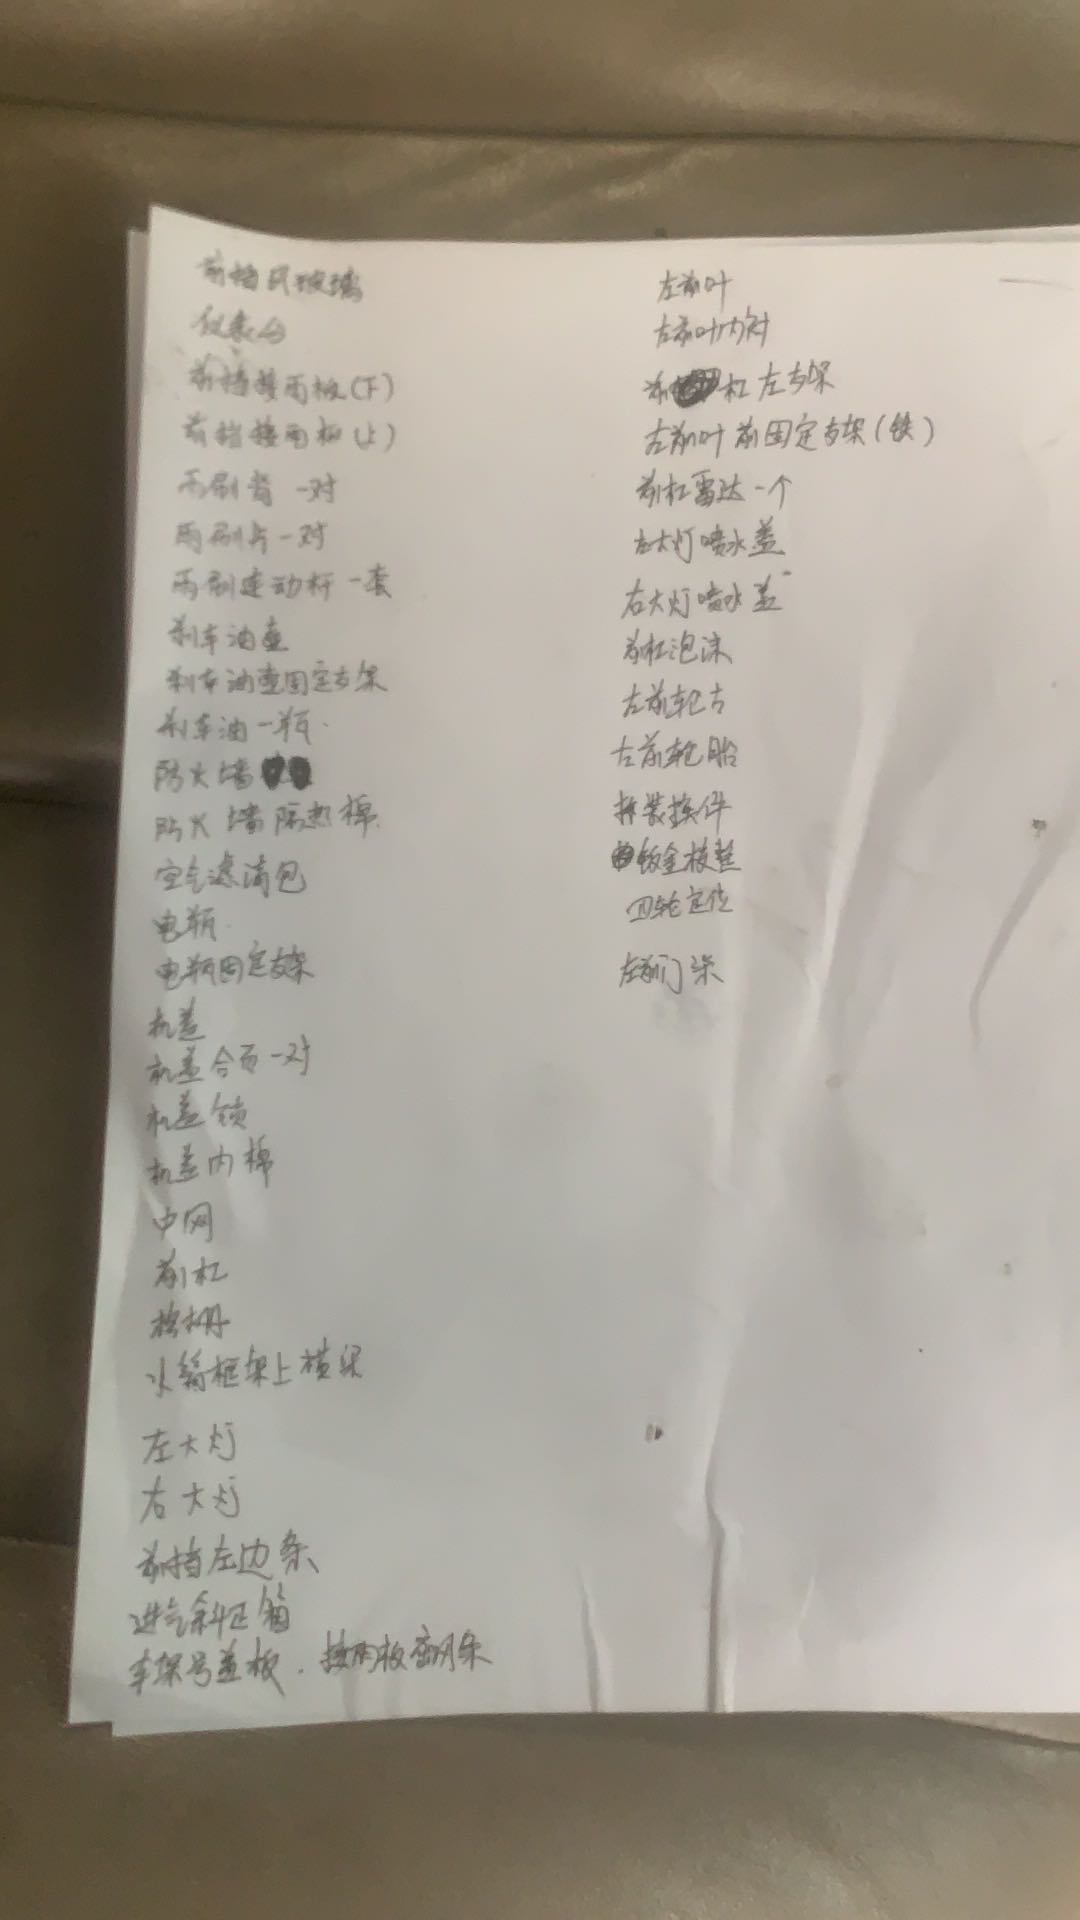 前档风玻璃
仪表台
前档接雨板(下)
前档接雨板(上)
雨刷臂一对
雨刷片一对
雨刷连动杆一套
刹车油壶
刹车油壶固定支架
刹车油一瓶.
防火墙
防火墙隔热棉.
空气滤清包
电瓶.
电瓶固定支架
机盖
机盖合页一对
机盖锁
机盖内棉
中网
前杠
格栅
水箱框架上横梁
左大灯
右大灯
前挡左边条
进气 箱
车架号盖板. 接雨板密封条
左前叶
左前叶内衬
前杠左支架
左前叶前固定支架(铁)
前杠雷达一个
左大灯喷水盖
右大灯喷水盖
前杠泡沫
左前轮
左前轮胎
拆装换件
钣金校整
四轮定位
左前门